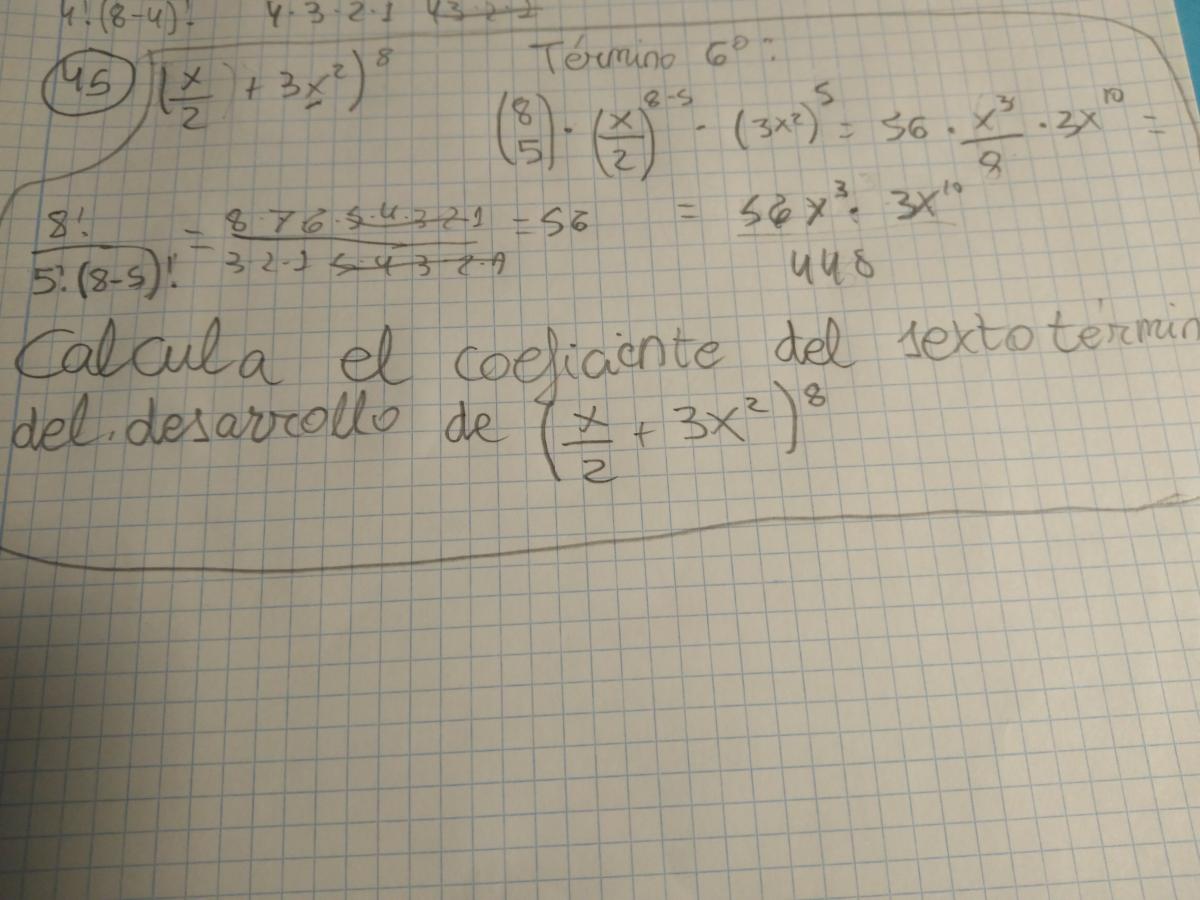 4!(8-4)! 4·3·2·1 4 3·2·1
45 (x/2 + 3x²)⁸ Término 6º:
(8 5) · (x/2)⁸⁻⁵ · (3x²)⁵ = 56 · x³/8 · 3x¹⁰ =
8!/5!(8-5)! = 8·7 6·5·4·3·2·1/3 2·1 5·4·3·2·1 = 56 = 56x³·3x¹⁰/448
Calcula el coeficiente del sexto términ
del desarrollo de (x/2 + 3x²)⁸